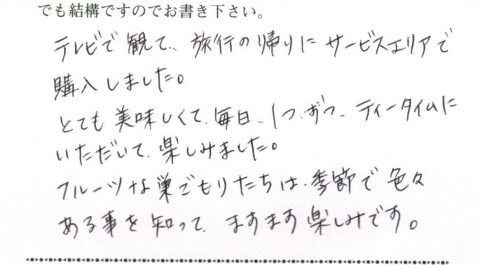 でも結構ですのでお書き下さい。
テレビで観て、旅行の帰りにサービスエリアで
購入しました。
とても美味しくて、毎日、1つ、ずつ、ティータイムに
いただいて、楽しみました。
フルーツな巣ごもりたちは、季節で色々
ある事を知って、ますます楽しみです。